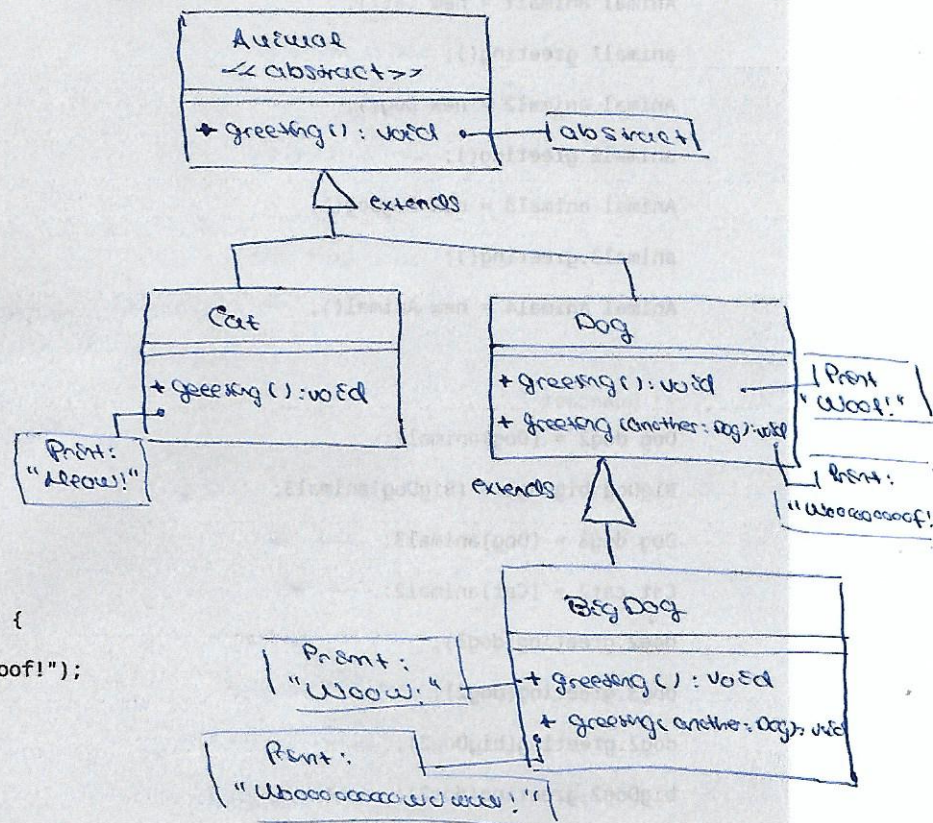 Animal
<<abstract>>
+ greeting(): void
abstract
extends
Cat
+ greeting(): void
Print:
"Meow!"
Dog
+ greeting(): void
+ greeting(another: Dog): void
Print
"Woof!"
Print:
"Woooooooof!
extends
{
oof!");
BigDog
+ greeting(): void
+ greeting(another: Dog): void
Print:
"Woow!"
Print: